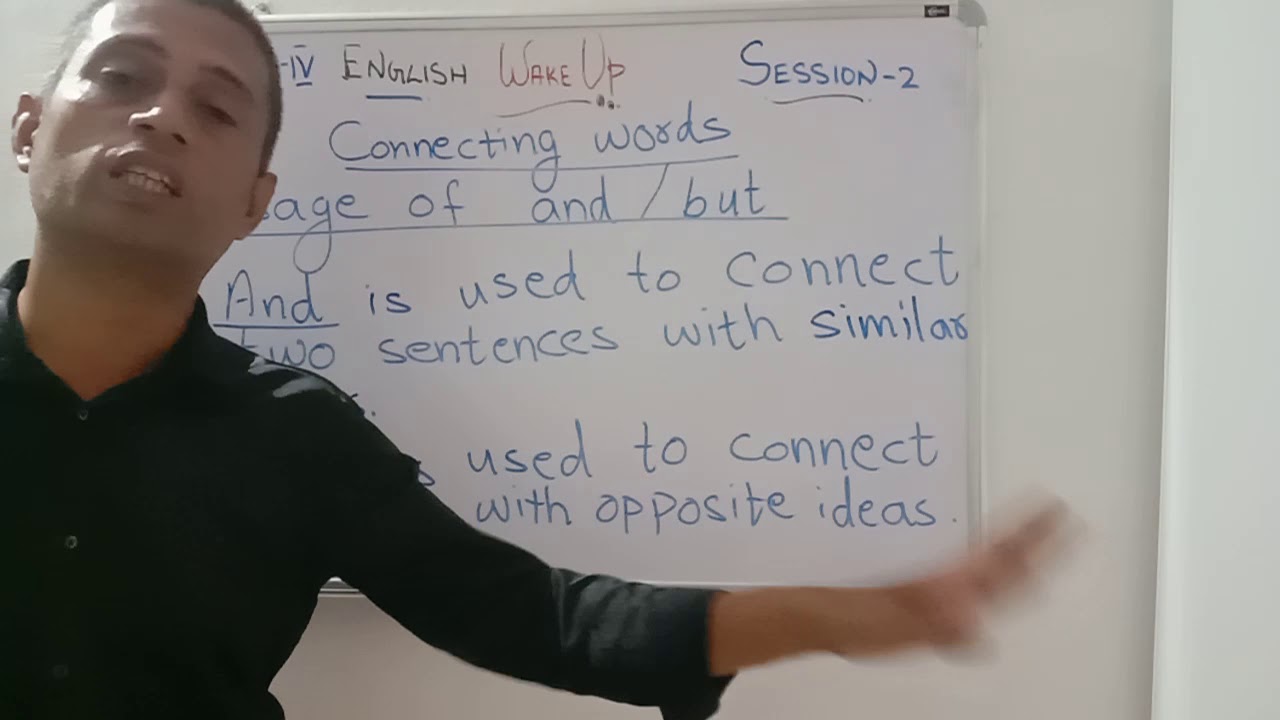 -IV ENGLISH WAKE UP SESSION-2
Connecting words
sage of and / but
And is used to connect
two sentences with similar
used to connect
with opposite ideas.